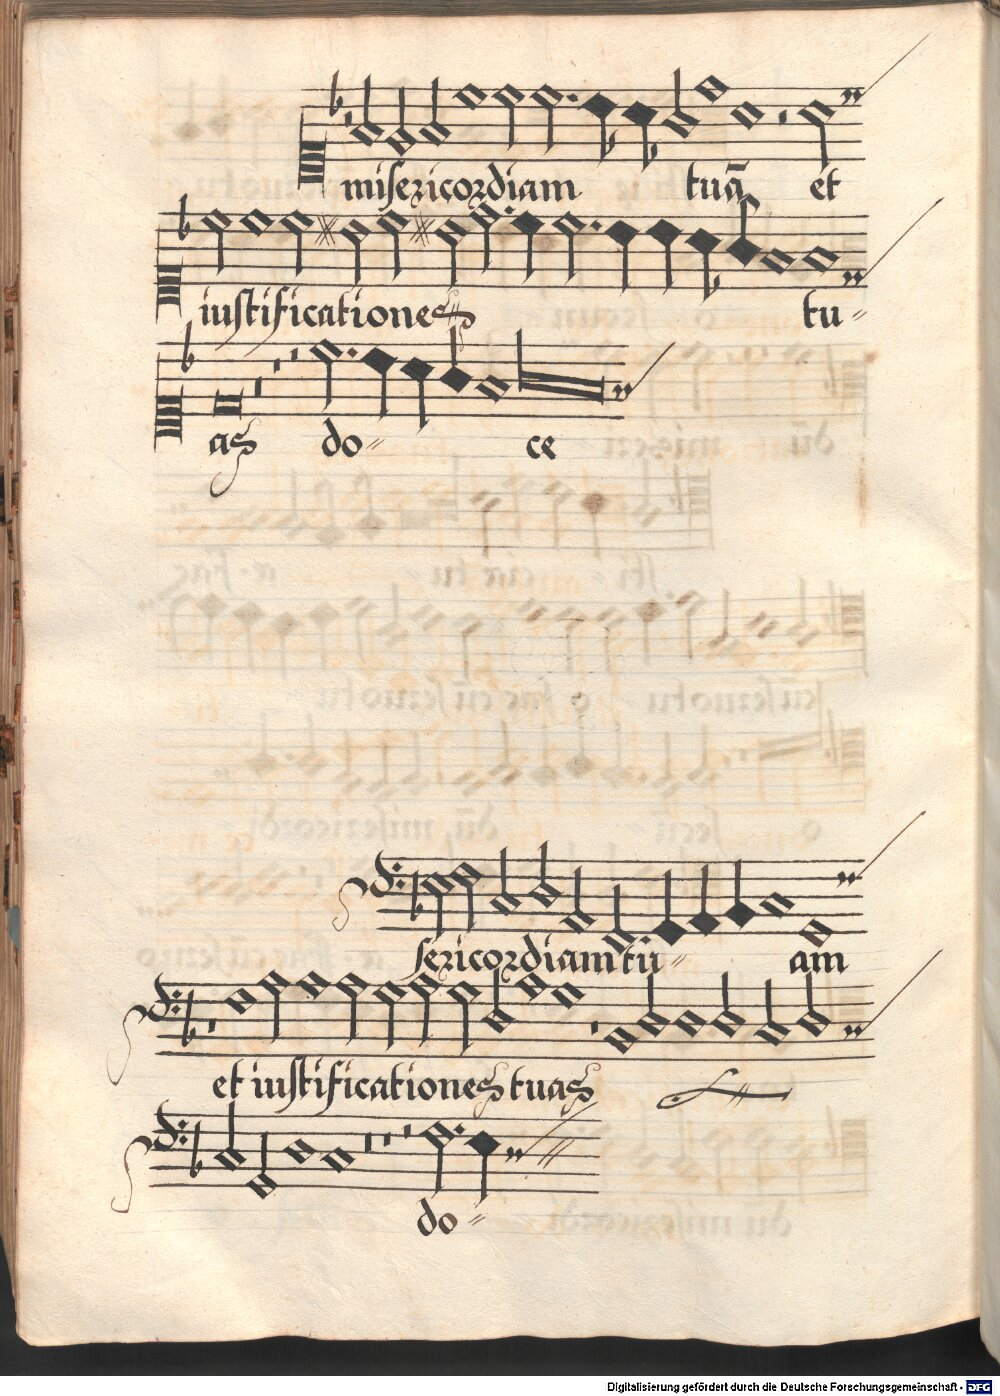 misericordiam tuā et
iustificationes tu=
as do= ce
sericordiam tu= am
et iustificationes tuas
do=
Digitalisierung gefördert durch die Deutsche Forschungsgemeinschaft - DFG